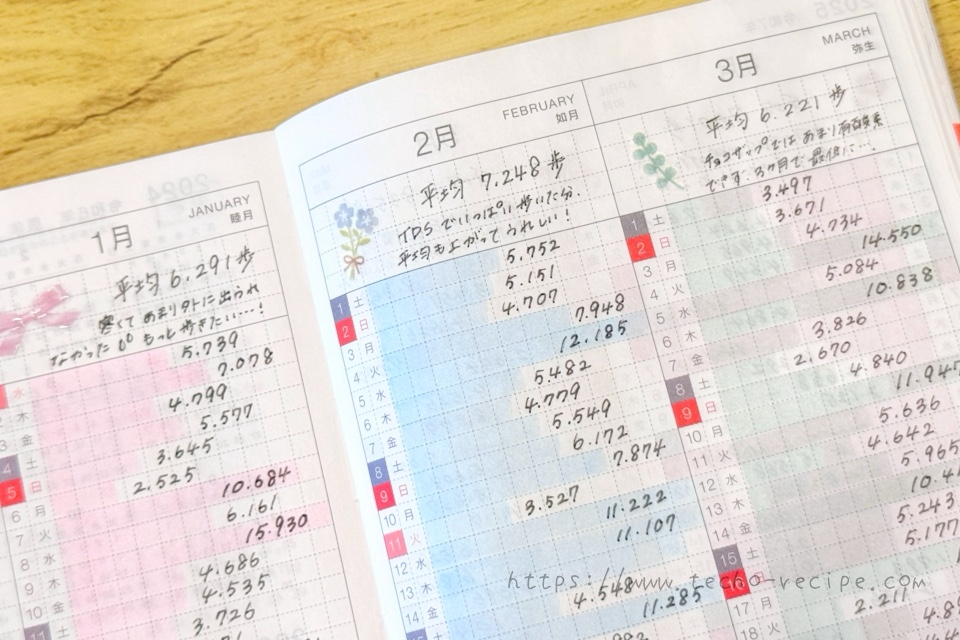 1月
JANUARY
睦月
平均 6.291歩
寒くて あまり外に出られ
なかった もっと歩きたい…!
5.739
7.078
4.799
5.577
3.645
2.525
10.684
6.161
15.930
4.686
4.535
3.726
水
木
3 金
4 土
5 日
6 月
7 火
8 水
9 木
10 金
11 土
2月
FEBRUARY
如月
平均 7.248歩
TDSでいっぱい歩いた分、
平均も上がってうれしい!
5.752
5.151
4.707
7.948
12.185
5.482
4.779
5.549
6.172
7.874
3.527
11.222
11.107
4.548
11.285
1 土
2 日
3 月
4 火
5 水
6 木
7 金
8 土
9 日
10 月
11 火
12 水
13 木
14 金
15 土
3月
MARCH
弥生
平均 6.221歩
チョコザップでは あまり有酸素
です。3ヶ月で最低に…!
3.497
3.671
4.734
14.550
5.084
10.838
3.826
2.670
4.840
11.947
5.636
4.642
5.965
10.4
5.243
5.177
2.211
4.89
1 土
2 日
3 月
4 火
5 水
6 木
7 金
8 土
9 日
10 月
11 火
12 水
13 木
14 金
15 土
16 日
17 月
18 火
https://www.techo-recipe.com